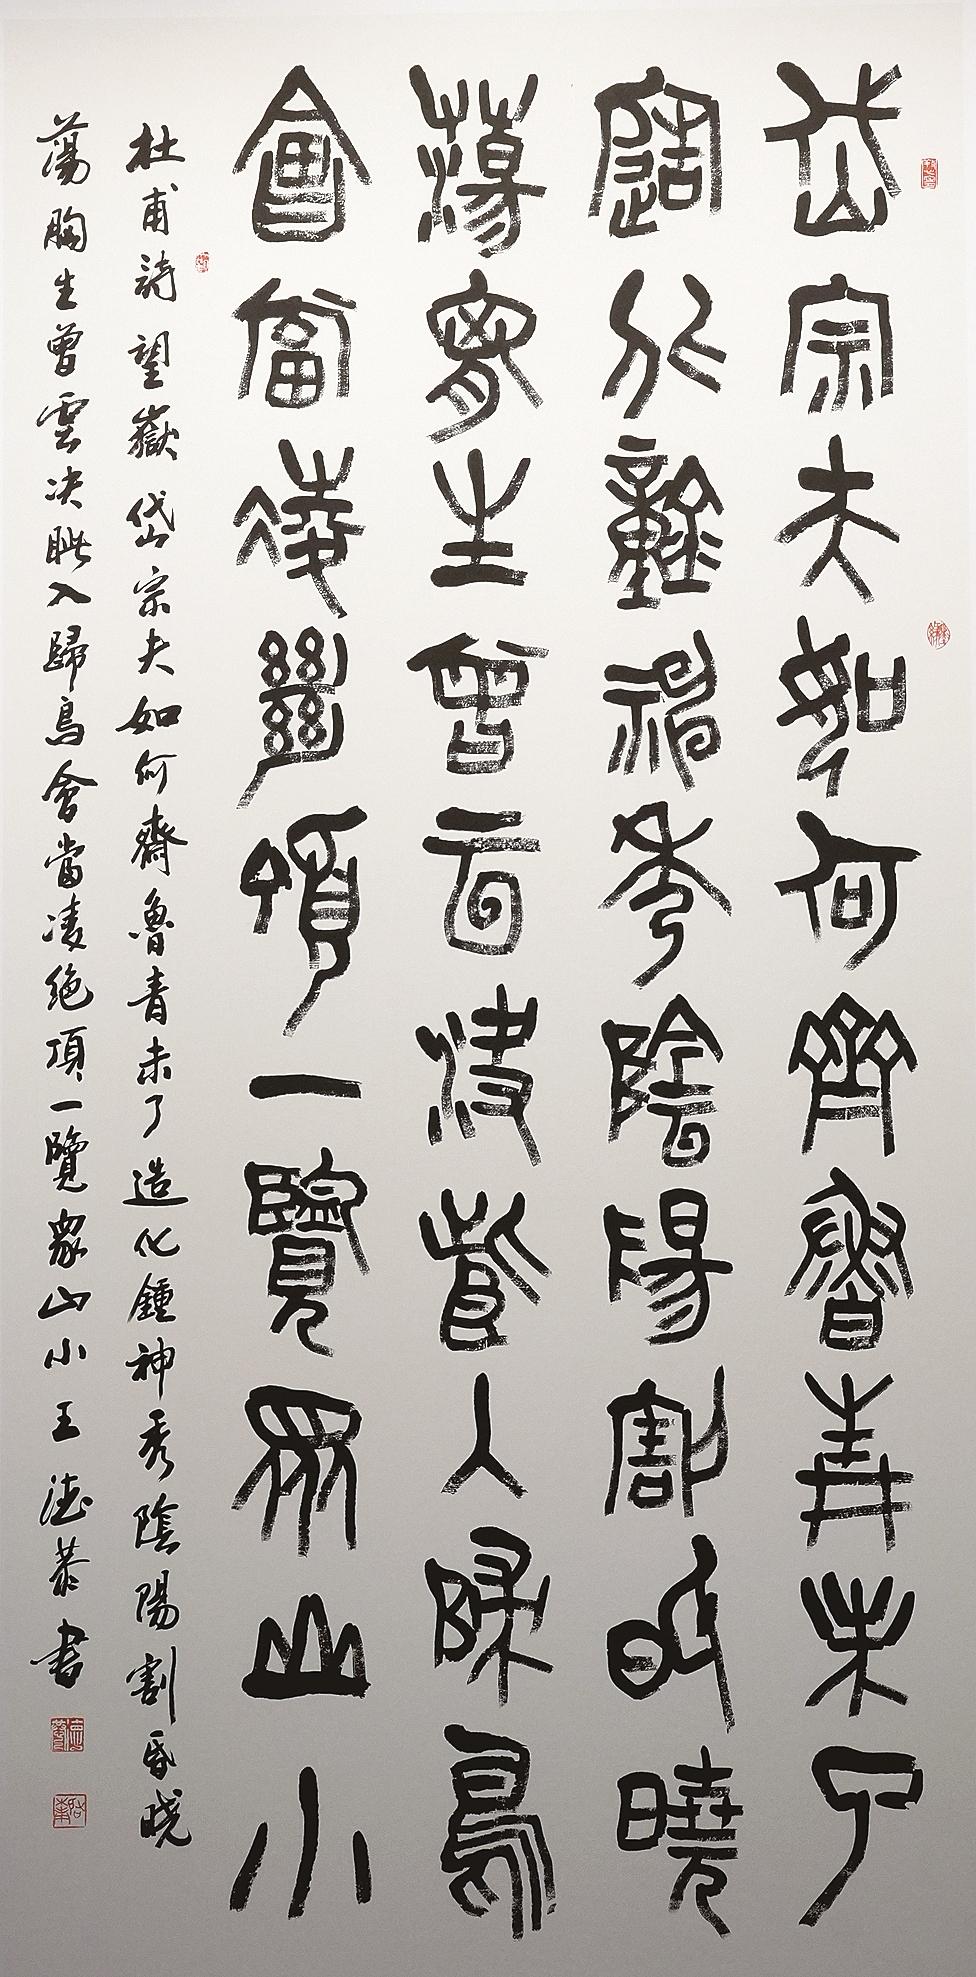 岱宗夫如何齊魯青未了
造化鍾神秀陰陽割昏曉
蕩胸生曾雲決眥入歸鳥
會當凌絕頂一覽眾山小
杜甫詩望嶽岱宗夫如何齊魯青未了造化鍾神秀陰陽割昏曉
蕩胸生曾雲决眦入歸鳥會當凌絕頂一覽眾山小王德恭書